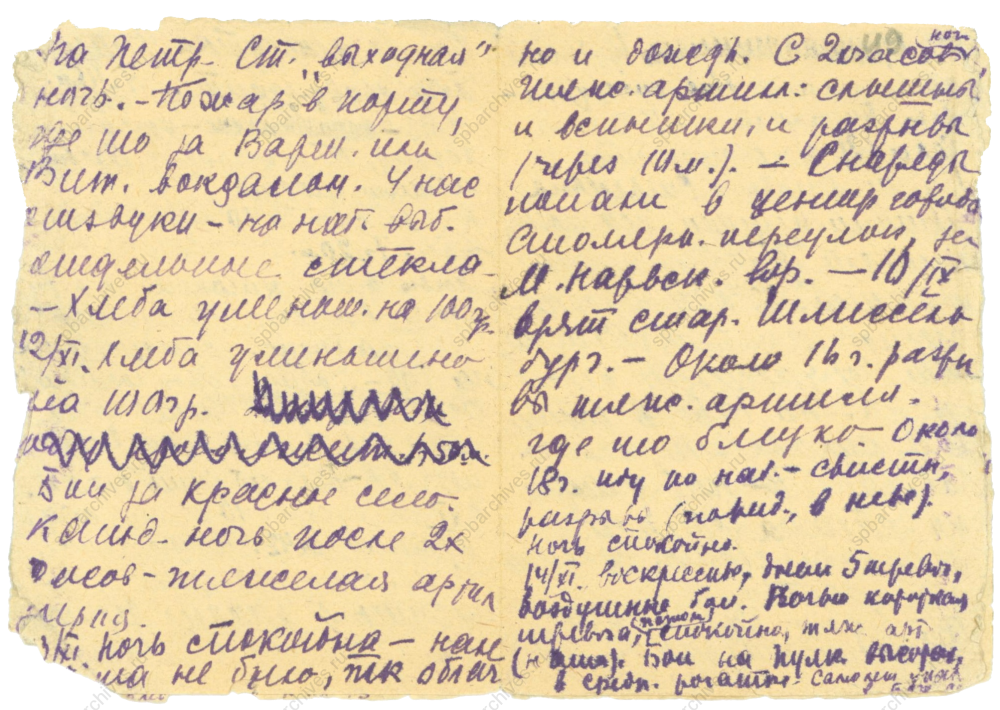 на Петр. Ст. "выходная"
ночь. - Пожар в порту,
где то за Варш. или
Вит. вокзалом. У нас
отзвуки - на наб. выб.
отдельные стекла
- Хлеба уменьш. на 100 гр.
12/IX. Хлеба уменьшено
на 100 гр.
Бои за красное село.
Кажд. ночь после 2х
часов - тяжелая артил
лерия.
ночь спокойна - нал
не было, тк облач
но и дождь. С 2 часов ночи
тяж. артил: слышны
и вспышки, и разрывы
(через 10 м.). - Снаряды
попали в центр города
Столярн. переулок, за
М. Нарвск. вор. - 10/IX
врят стар. Шлиссель
бург. - Около 16 г. разры
вы тяж. артилл.
где то близко. Около
18 г. иду по наб. - свисты,
разрывы (повид., в небе).
Ночь спокойно.
14/IX. воскресенье, днем 5 тревог,
воздушные бои. Ночью короткая
тревога, (потом) спокойно, тяж арт
(наша). Бои на Пулк. высотах,
в средн. рогатке - самолет
49
spbarchives.ru